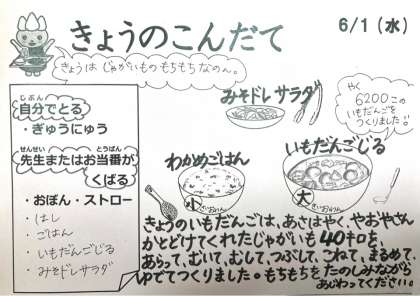 きょうのこんだて
6/1(水)
きょうは じゃがいものもちもちなのん。
自分でとる
じぶん
・ぎゅうにゅう
先生またはお当番が
せんせい
とうばん
くばる
・おぼん・ストロー
・はし
・ごはん
・いもだんごじる
・みそドレサラダ
みそドレサラダ
やく
6200この
いもだんごを
つくりました!!
わかめごはん
小
おわん
いもだんごじる
大
きょうのいもだんごは、あさはやく、やおやさん
がとどけてくれたじゃがいも40キロを、
あらって、むいて、むして、つぶして、こねて、まるめて、
ゆでてつくりました。もちもちをたのしみながら
あじわってください。